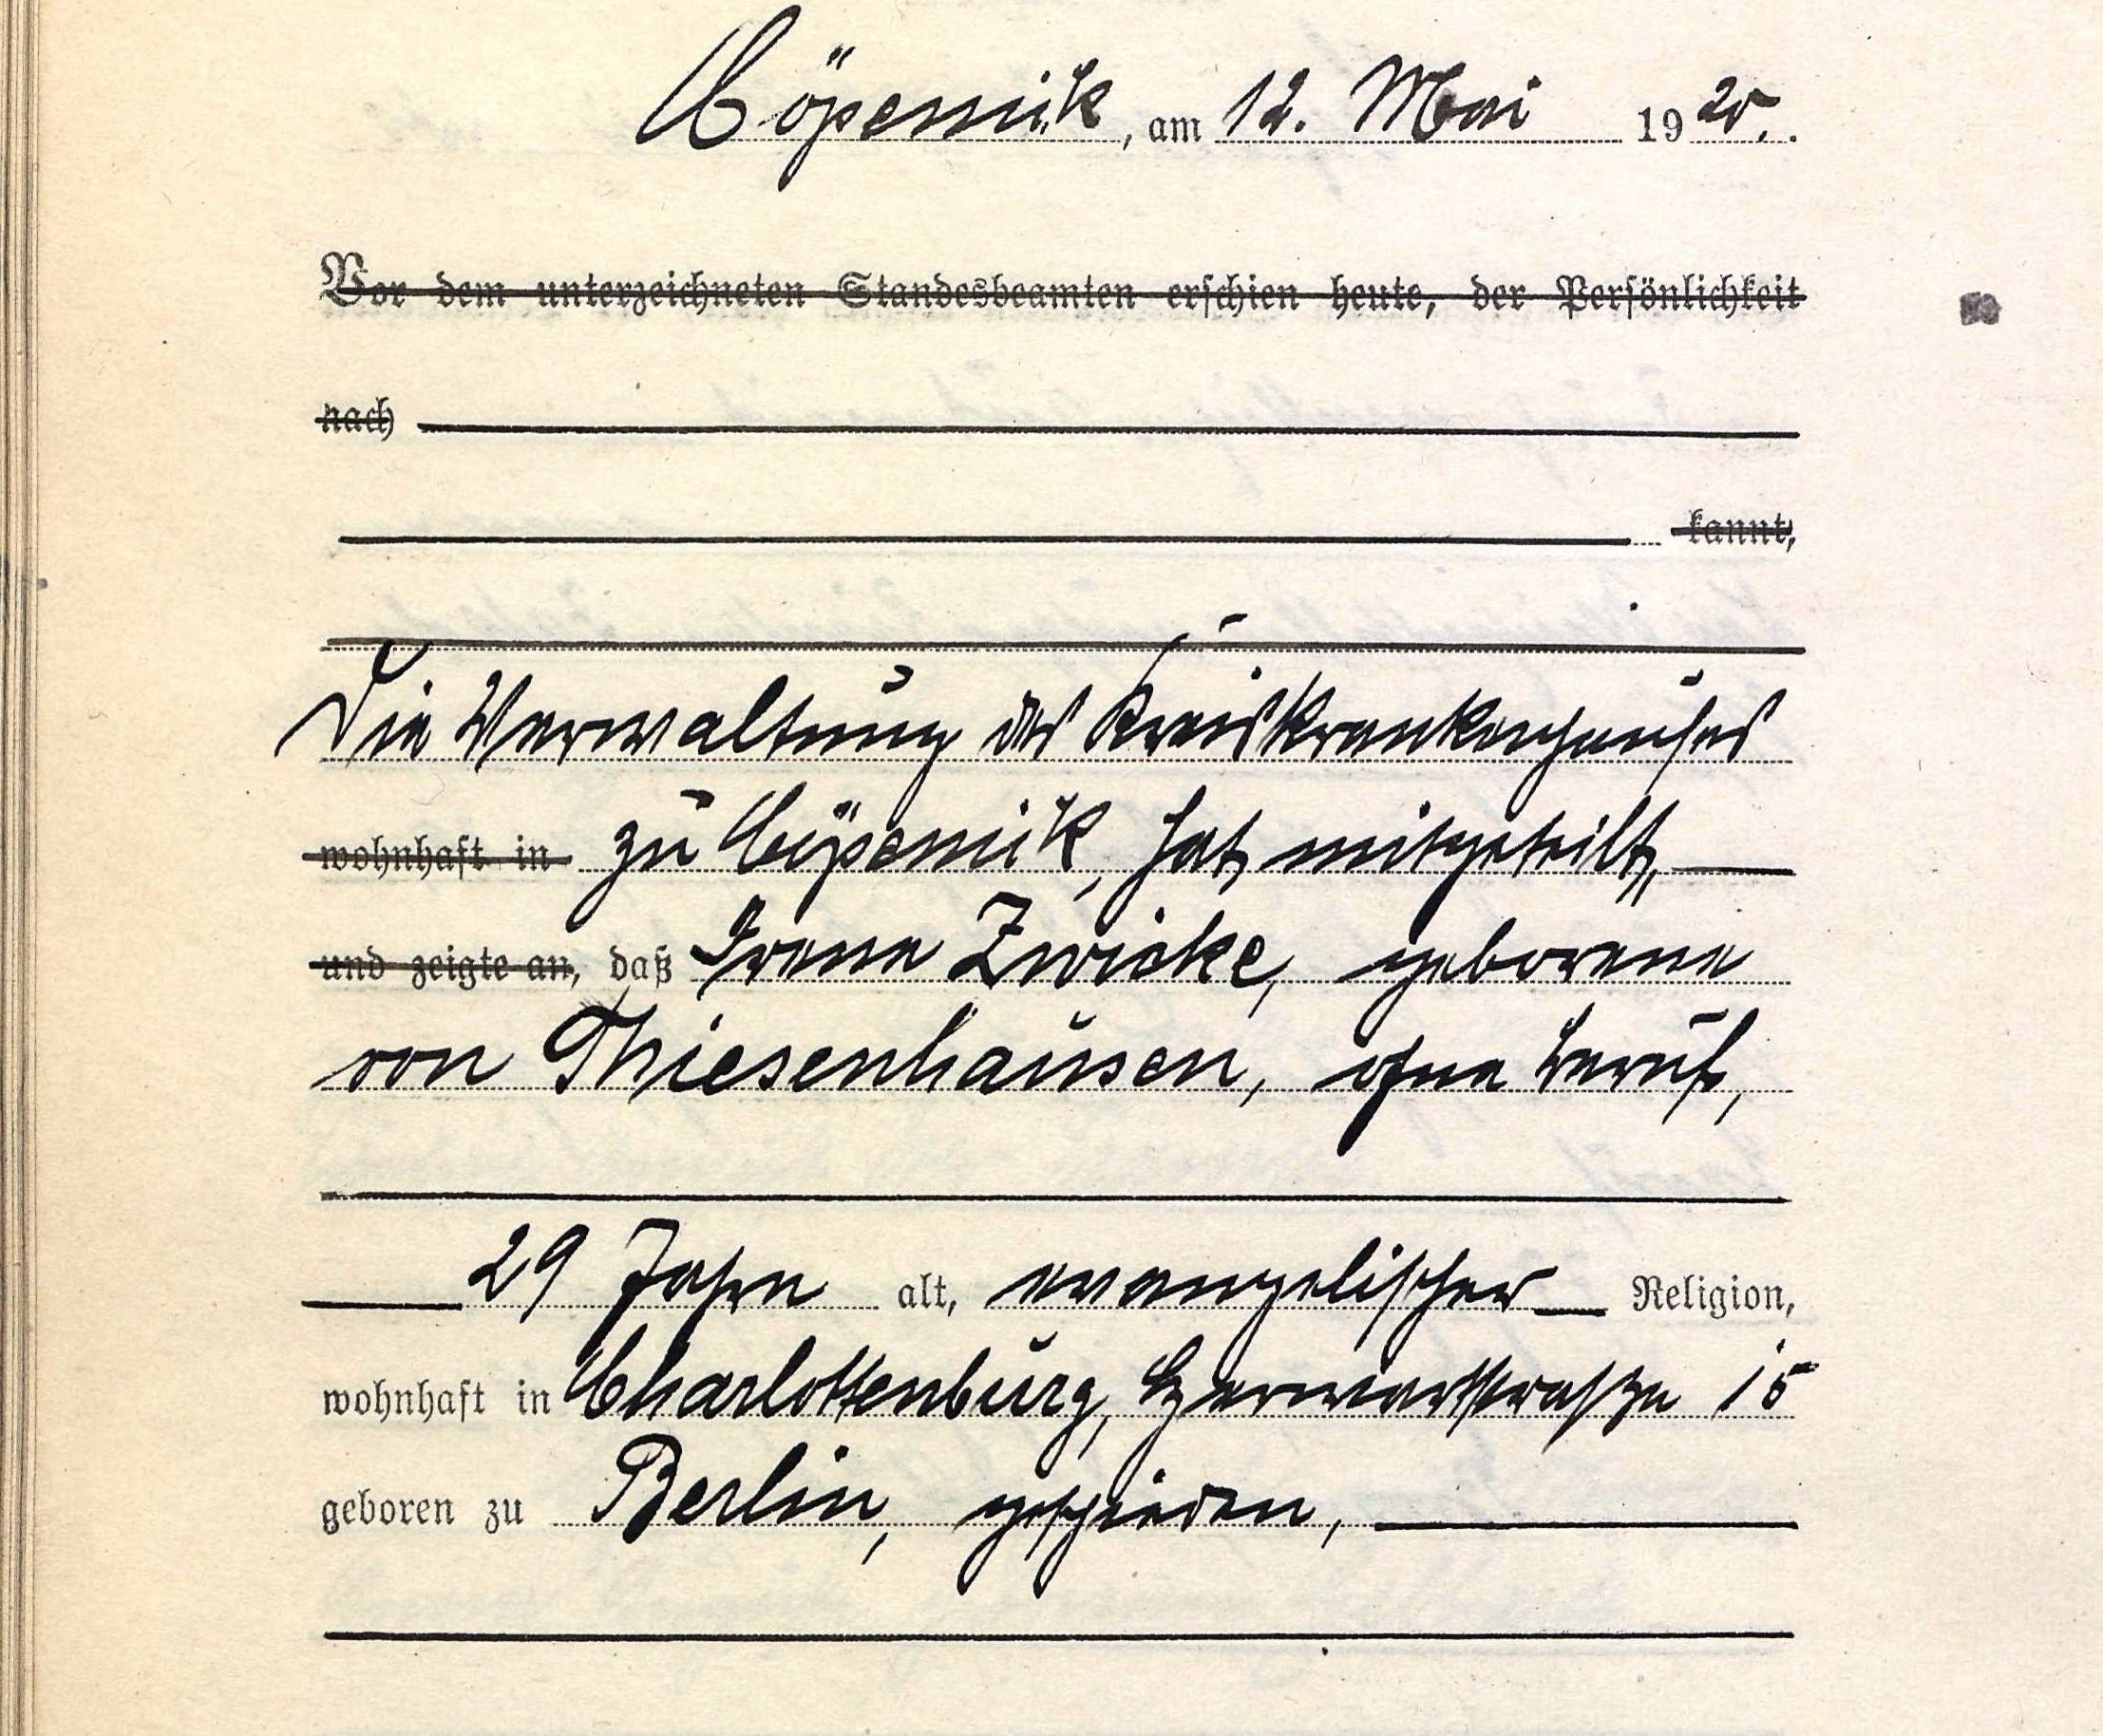 Cöpenick, am 12. Mai 1920.
Vor dem unterzeichneten Standesbeamten erschien heute, der Persönlichkeit
nach
kannt,
Die Verwaltung des Kreiskrankenhauses
wohnhaft in zu Cöpenick, hat mitgeteilt,
und zeigte an, daß Irene Zwicke, geborene
von Thiesenhausen, ohne Beruf,
29 Jahre alt, evangelischer Religion,
wohnhaft in Charlottenburg, 15
geboren zu Berlin, geschieden,